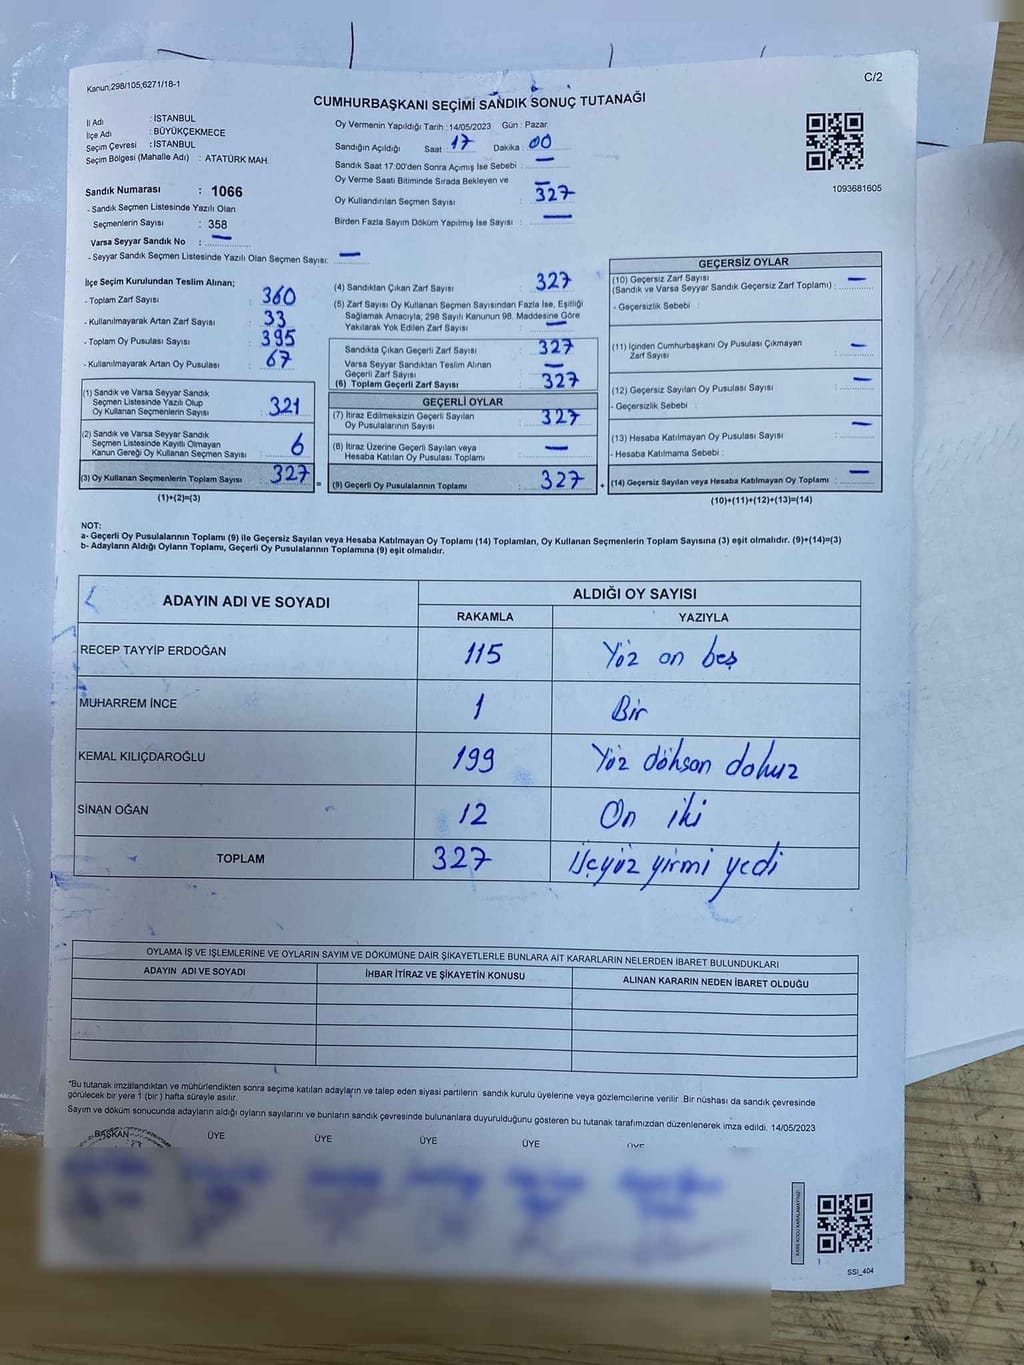 Kanun;298/105;6271/18-1
C/2
CUMHURBAŞKANI SEÇİMİ SANDIK SONUÇ TUTANAĞI
İl Adı : İSTANBUL
İlçe Adı : BÜYÜKÇEKMECE
Seçim Çevresi : İSTANBUL
Seçim Bölgesi (Mahalle Adı) : ATATÜRK MAH.
Sandık Numarası : 1066
- Sandık Seçmen Listesinde Yazılı Olan
Seçmenlerin Sayısı : 358
Varsa Seyyar Sandık No : —
- Seyyar Sandık Seçmen Listesinde Yazılı Olan Seçmen Sayısı: —
Oy Vermenin Yapıldığı Tarih : 14/05/2023 Gün : Pazar
Sandığın Açıldığı Saat : 17 Dakika : 00
Sandık Saat 17:00'den Sonra Açımış İse Sebebi : —
Oy Verme Saati Bitiminde Sırada Bekleyen ve —
Oy Kullandırılan Seçmen Sayısı : 327
Birden Fazla Sayım Döküm Yapılmış İse Sayısı : —
1093681605
İlçe Seçim Kurulundan Teslim Alınan;
- Toplam Zarf Sayısı : 360
- Kullanılmayarak Artan Zarf Sayısı : 33
- Toplam Oy Pusulası Sayısı : 395
- Kullanılmayarak Artan Oy Pusulası : 67
(1) Sandık ve Varsa Seyyar Sandık
Seçmen Listesinde Yazılı Olup
Oy Kullanan Seçmenlerin Sayısı : 321
(2) Sandık ve Varsa Seyyar Sandık
Seçmen Listesinde Kayıtlı Olmayan
Kanun Gereği Oy Kullanan Seçmen Sayısı : 6
(3) Oy Kullanan Seçmenlerin Toplam Sayısı : 327 =
(1)+(2)=(3)
(4) Sandıktan Çıkan Zarf Sayısı : 327
(5) Zarf Sayısı Oy Kullanan Seçmen Sayısından Fazla İse, Eşitliği
Sağlamak Amacıyla, 298 Sayılı Kanunun 98. Maddesine Göre
Yakılarak Yok Edilen Zarf Sayısı : —
Sandıkta Çıkan Geçerli Zarf Sayısı : 327
Varsa Seyyar Sandıktan Teslim Alınan
Geçerli Zarf Sayısı : —
(6) Toplam Geçerli Zarf Sayısı : 327
GEÇERLİ OYLAR
(7) İtiraz Edilmeksizin Geçerli Sayılan
Oy Pusulalarının Sayısı : 327
(8) İtiraz Üzerine Geçerli Sayılan veya
Hesaba Katılan Oy Pusulası Toplamı : —
(9) Geçerli Oy Pusulalarının Toplamı : 327 +
GEÇERSİZ OYLAR
(10) Geçersiz Zarf Sayısı
(Sandık ve Varsa Seyyar Sandık Geçersiz Zarf Toplamı) : —
- Geçersizlik Sebebi :
(11) İçinden Cumhurbaşkanı Oy Pusulası Çıkmayan
Zarf Sayısı : —
(12) Geçersiz Sayılan Oy Pusulası Sayısı : —
- Geçersizlik Sebebi :
(13) Hesaba Katılmayan Oy Pusulası Sayısı : —
- Hesaba Katılmama Sebebi :
(14) Geçersiz Sayılan veya Hesaba Katılmayan Oy Toplamı : —
(10)+(11)+(12)+(13)=(14)
NOT:
a- Geçerli Oy Pusulalarının Toplamı (9) ile Geçersiz Sayılan veya Hesaba Katılmayan Oy Toplamı (14) Toplamları, Oy Kullanan Seçmenlerin Toplam Sayısına (3) eşit olmalıdır. (9)+(14)=(3)
b- Adayların Aldığı Oyların Toplamı, Geçerli Oy Pusulalarının Toplamına (9) eşit olmalıdır.
ADAYIN ADI VE SOYADI ALDIĞI OY SAYISI
RAKAMLA YAZIYLA
RECEP TAYYİP ERDOĞAN 115 Yüz on beş
MUHARREM İNCE 1 Bir
KEMAL KILIÇDAROĞLU 199 Yüz döhsan dokuz
SİNAN OĞAN 12 On iki
TOPLAM 327 Üçyüz yirmi yedi
OYLAMA İŞ VE İŞLEMLERİNE VE OYLARIN SAYIM VE DÖKÜMÜNE DAİR ŞİKAYETLERLE BUNLARA AİT KARARLARIN NELERDEN İBARET BULUNDUKLARI
ADAYIN ADI VE SOYADI İHBAR İTİRAZ VE ŞİKAYETİN KONUSU ALINAN KARARIN NEDEN İBARET OLDUĞU
*Bu tutanak imzalandıktan ve mühürlendikten sonra seçime katılan adayların ve talep eden siyasi partilerin sandık kurulu üyelerine veya gözlemcilerine verilir. Bir nüshası da sandık çevresinde
görülecek bir yere 1 (bir) hafta süreyle asılır.
Sayım ve döküm sonucunda adayların aldığı oyların sayılarını ve bunların sandık çevresinde bulunanlara duyurulduğunu gösteren bu tutanak tarafımızdan düzenlenerek imza edildi. 14/05/2023
BAŞKAN ÜYE ÜYE ÜYE ÜYE ÜYE
SSI_404